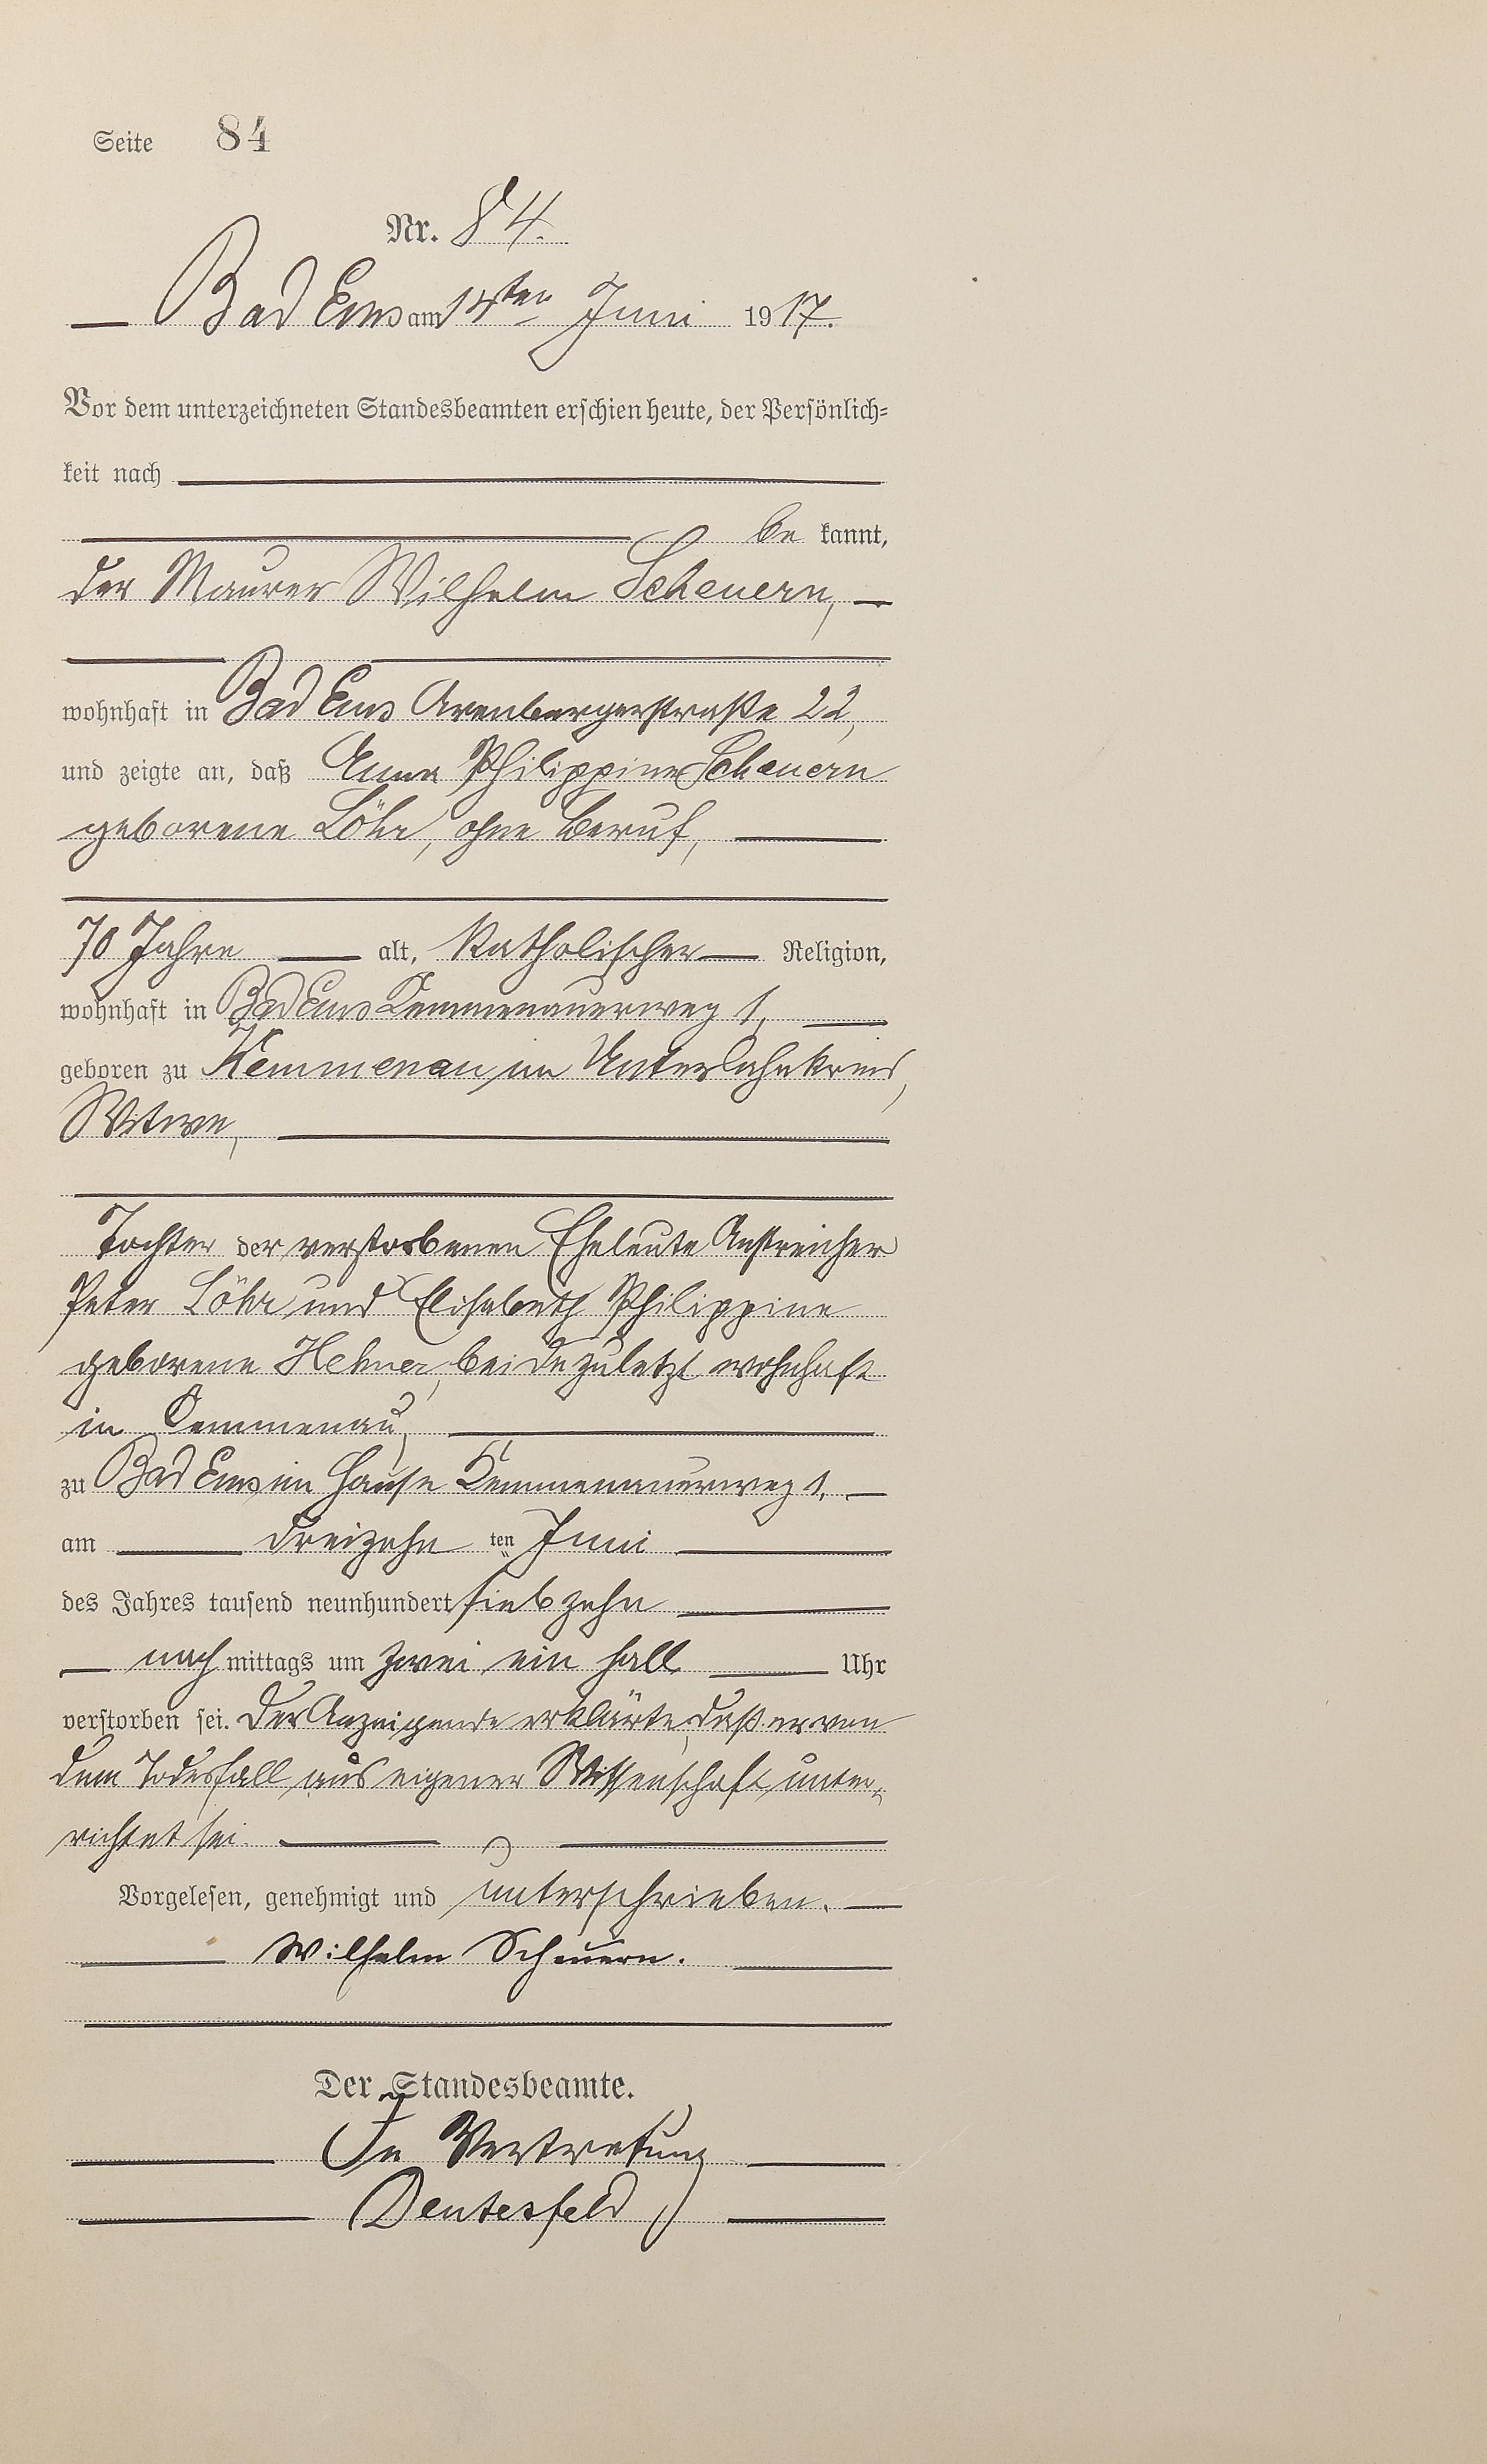 Seite 84
Nr. 84.
Bad Ems am 14ten Juni 1917.
Vor dem unterzeichneten Standesbeamten erschien heute, der Persönlich=
keit nach
be kannt,
der Maurer Wilhelm Scheuern,
wohnhaft in Bad Ems Arenbergerstraße 22,
und zeigte an, daß Anna Philippine Scheuern
geborene Löhr, ohne Beruf,
70 Jahre alt, katholischer Religion,
wohnhaft in Bad Ems Kemmenauerweg 1,
geboren zu Kemmenau im Unterlahnkreis,
Witwe,
Tochter der verstorbenen Eheleute Anstreicher
Peter Löhr und Elisabeth Philippine
geborene Hebner, beide zuletzt wohnhaft
in Kemmenau,
zu Bad Ems im Hause Kemmenauerweg 1,
am dreizehn ten Juni
des Jahres tausend neunhundert siebzehn
nach mittags um zwei ein halb Uhr
verstorben sei. Der Anzeigende erklärte, daß er von
dem Todesfall aus eigener Wissenschaft unter-
richtet sei.
Vorgelesen, genehmigt und unterschrieben.
Wilhelm Scheuern.
Der Standesbeamte.
In Vertretung
Deutesfeld